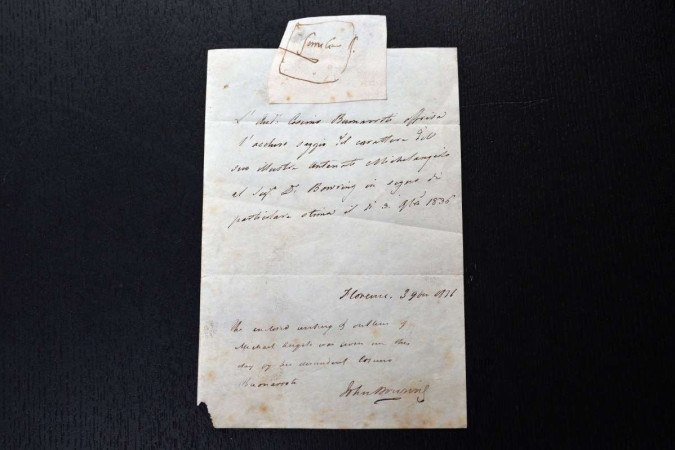 simile
L'Aud. Cosimo Buonarroti offriva
l'accluso saggio del carattere del
suo illustre antenato Michelangelo
al Sigr. Dr. Bowring in segno di
particolare stima il dì 3. 9bre 1836
Florence. 3 9
The enclosed writing & outline of
Michael Angelo was given me this
day by his descendant Cosimo
Buonarroti
John Bowring